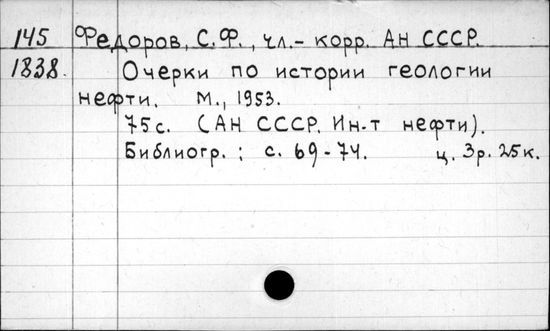 145 Федоров, С.Ф., чл.- корр. АН СССР.
1838. Очерки по истории геологии
нефти. М., 1953.
75 с. (АН СССР. Ин-т нефти).
Библиогр.: с. 69-74. ц. 3р. 25к.